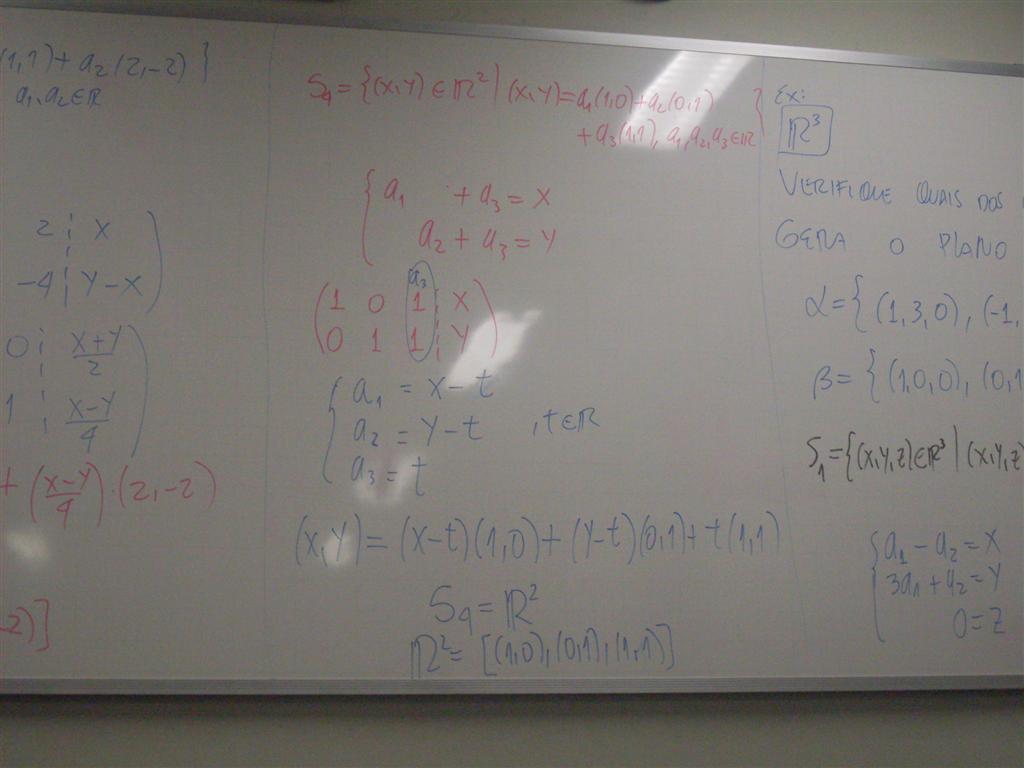 (1,1) + a₂(2,-2) }
a₁, a₂ ∈ ℝ
2 ¦ x
-4 ¦ y-x )
0 ¦ x+y/2
1 ¦ x-y/4 )
+ (x-y/4)·(2,-2)
2)]
S₄ = {(x,y) ∈ ℝ² | (x,y) = a₁(1,0) + a₂(0,1)
+ a₃(1,1), a₁, a₂, a₃ ∈ ℝ }
{ a₁ + a₃ = x
a₂ + a₃ = y
a₃
( 1 0 1 ¦ x )
( 0 1 1 ¦ y )
{ a₁ = x-t
a₂ = y-t , t ∈ ℝ
a₃ = t
(x,y) = (x-t)(1,0) + (y-t)(0,1) + t(1,1)
S₄ = ℝ²
ℝ² = [(1,0),(0,1),(1,1)]
Ex:
ℝ³
VERIFIQUE QUAIS DOS
GERA O PLANO
α = { (1,3,0), (-1,
β = { (1,0,0), (0,1
S₁ = {(x,y,z) ∈ ℝ³ | (x,y,z)
{ a₁ - a₂ = x
3a₁ + a₂ = y
0 = z